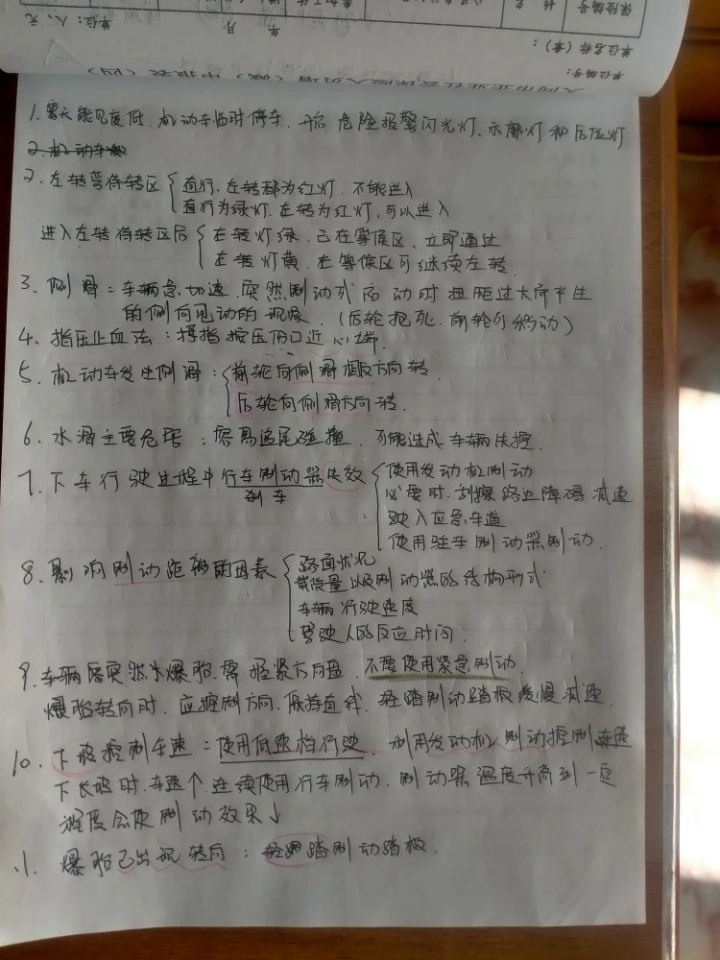 单位编号：
单位名称(章)：
单位：人、元
年 月
保险编号
姓名
1. 雾天能见度低. 机动车临时停车. 开启 危险报警闪光灯、示廓灯和后位灯
2. 机动车
2. 左转弯待转区 直行. 左转都为红灯. 不能进入
直行为绿灯. 左转为红灯. 可以进入
进入左转待转区后 左转灯绿. 已在等候区、立即通过
左转灯黄. 在等候区可继续左转.
3. 侧滑：车辆急加速. 突然制动或启动时扭矩过大而产生
的侧向甩动的现象. (后轮抱死. 前轮仍移动)
4. 指压止血法：拇指按压伤口近心端.
5. 机动车发生侧滑： 前轮向侧滑相反方向转
后轮向侧滑方向转.
6. 水滑主要危害：容易追尾碰撞. 可能造成车辆失控.
7. 下车行驶过程中行车制动器失效 使用发动机制动
刹车
必要时. 刮擦路边障碍减速
驶入应急车道
使用驻车制动器制动.
8. 影响制动距离的因素 路面状况
载质量以及制动器的结构形式
车辆行驶速度
驾驶人的反应时间.
9. 车辆后突然爆胎. 需握紧方向盘. 不要使用紧急制动.
爆胎转向时. 应控制方向. 保持直线. 轻踏制动踏板缓慢减速.
10. 下坡控制车速：使用低速档行驶. 利用发动机制动控制车速
下长坡时. 车速↑. 连续使用行车制动. 制动器温度升高到一定
程度会使制动效果↓
11. 爆胎已出现转向：轻踏制动踏板.